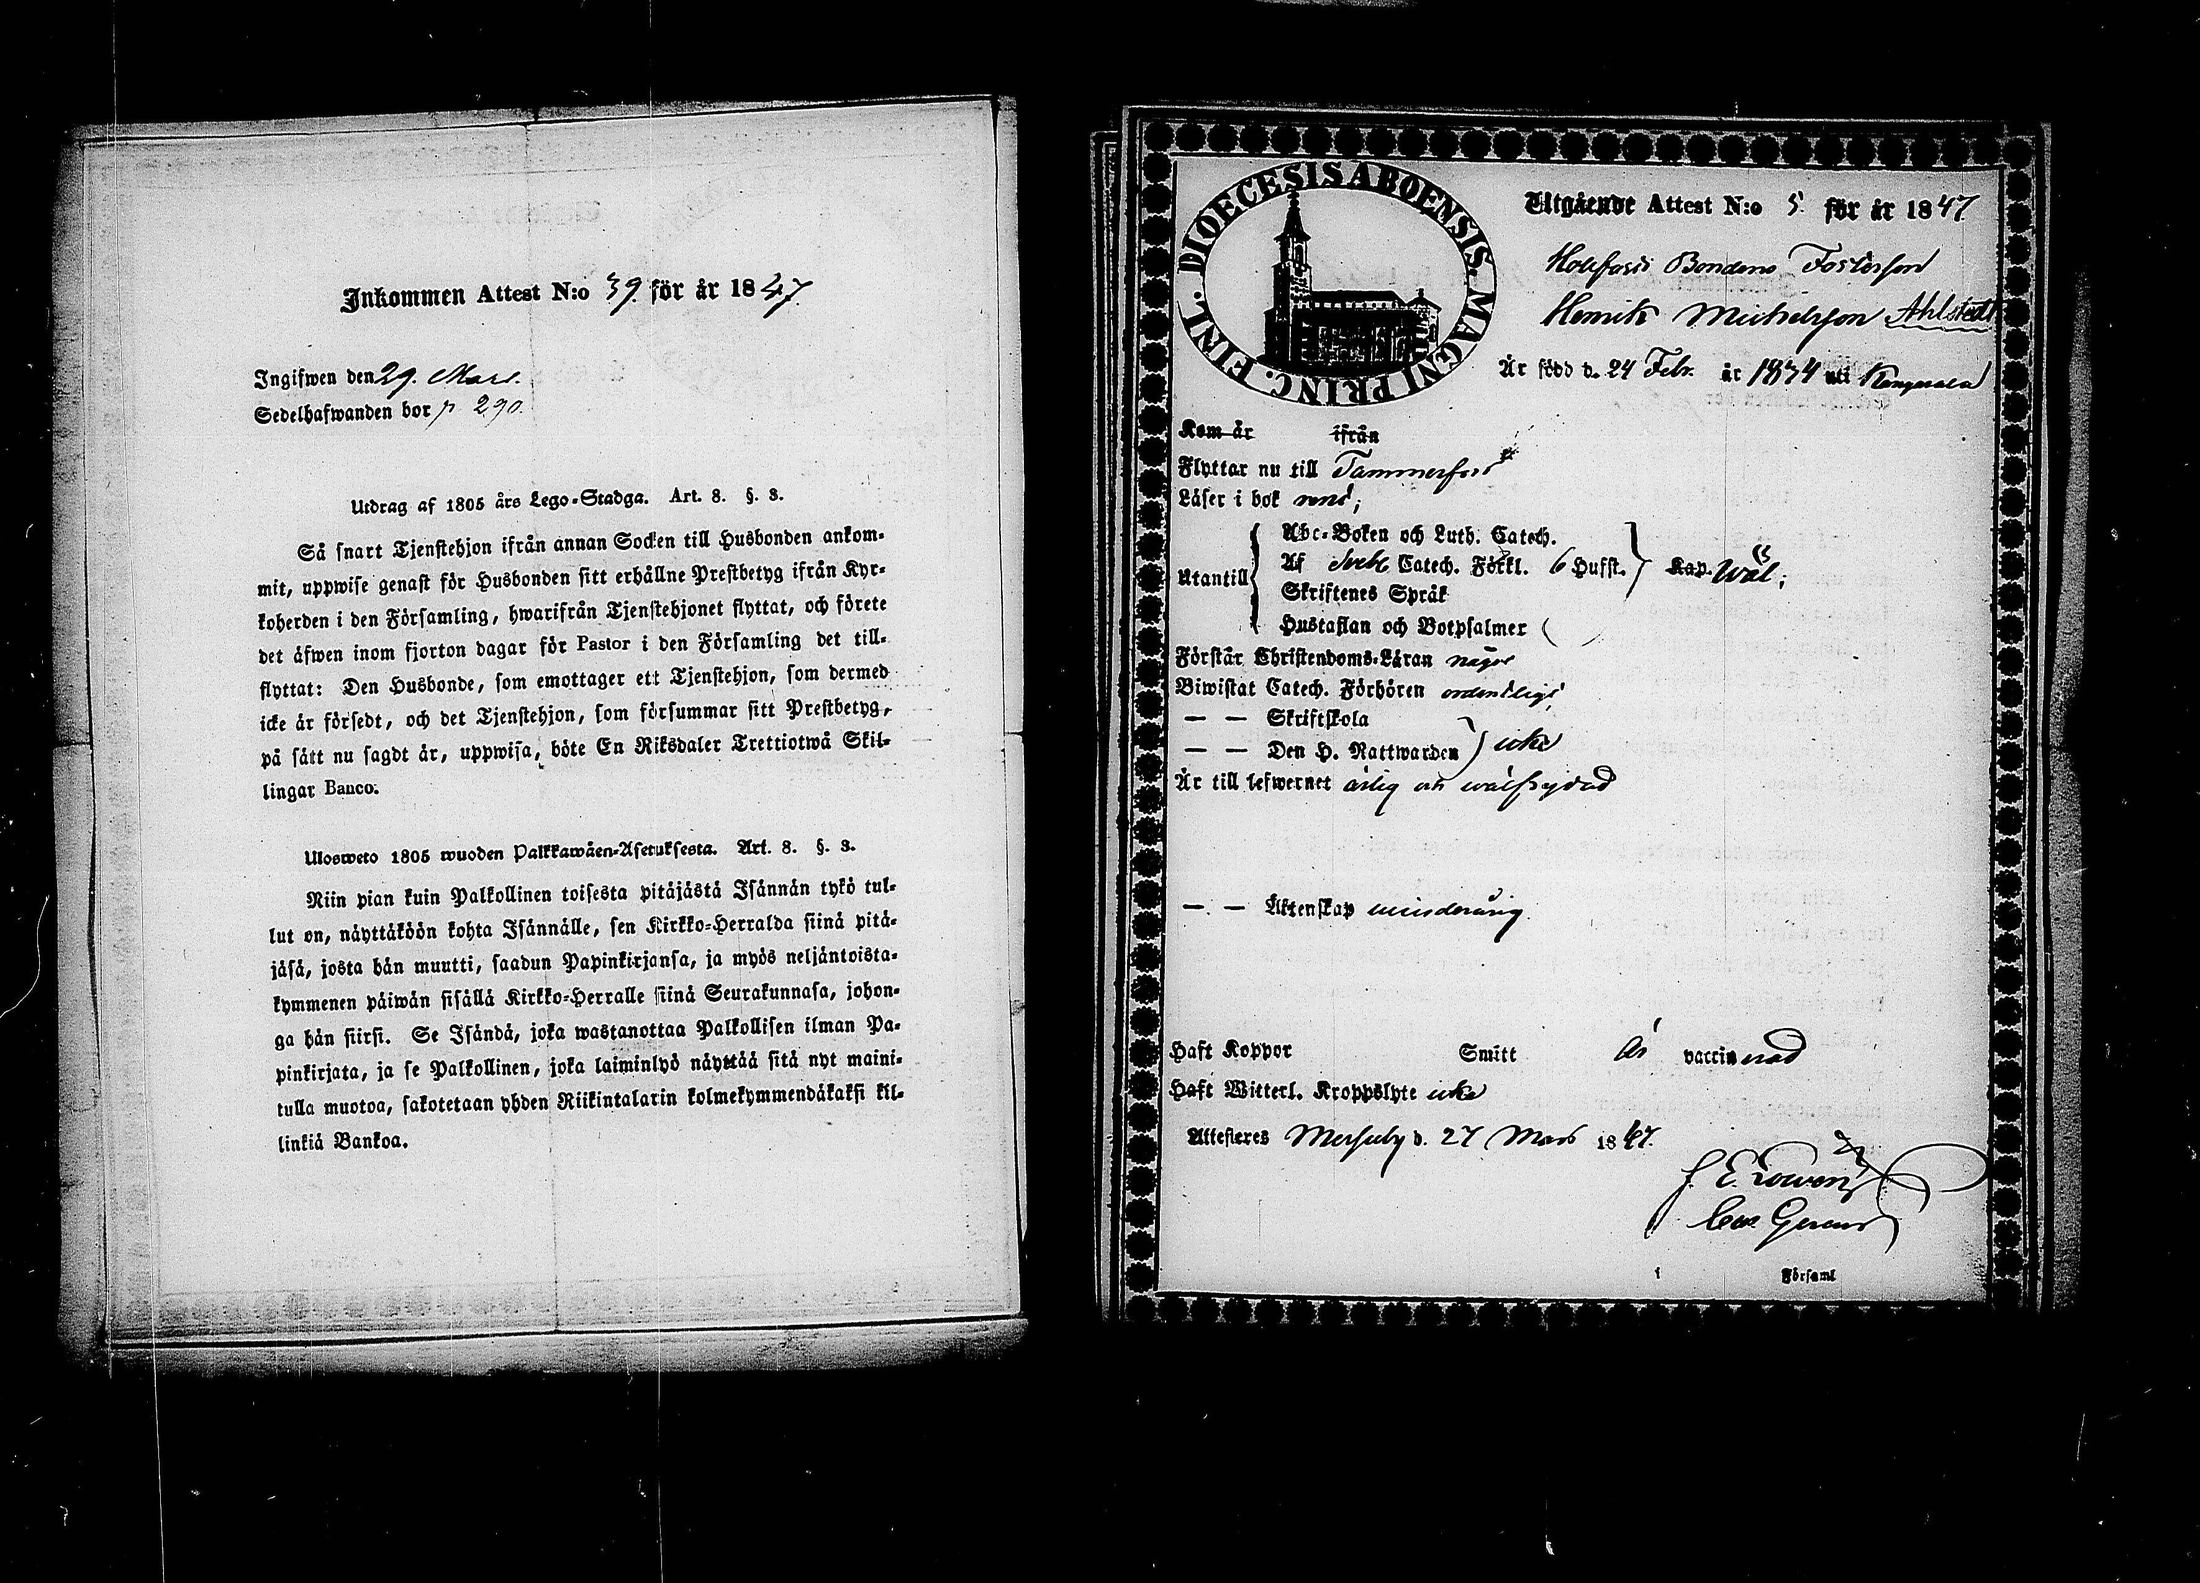 Inkommen Attest N:o 39. för år 1847.
Ingifwen den 29. Mars.
Sedelhafwanden bor p 290.
Utdrag af 1805 års Lego-Stadga. Art. 8. §. 3.
Så snart Tjenstehjon ifrån annan Socken till Husbonden ankom-
mit, uppwise genast för Husbonden sitt erhållne Prestbetyg ifrån Kyr-
koherden i den Församling, hwarifrån Tjenstehjonet flyttat, och förete
det äfwen inom fjorton dagar för Pastor i den Församling det till-
flyttat: Den Husbonde, som emottager ett Tjenstehjon, som dermed
icke är försedt, och det Tjenstehjon, som försummar sitt Prestbetyg,
på sätt nu sagdt är, uppwisa, böte En Riksdaler Trettiotwå Skil-
lingar Banco.
Ulosweto 1805 wuoden Palkkawäen-Asetuksesta. Art. 8. §. 3.
Niin pian kuin Palkollinen toisesta pitäjästä Isännän tykö tul-
lut on, näyttäköön kohta Isännälle, sen Kirkko-Herralda siinä pitä-
jäsä, josta hän muutti, saadun Papinkirjansa, ja myös neljäntoista-
kymmenen päiwän sisällä Kirkko-Herralle siinä Seurakunnasa, johon-
ga hän siirsi. Se Isändä, joka wastanottaa Palkollisen ilman Pa-
pinkirjata, ja se Palkollinen, joka laiminlyö näyttää sitä nyt maini-
tulla muotoa, sakotetaan yhden Riikintalarin kolmekymmendäkaksi kil-
linkiä Bankoa.
DIOECESIS ABOENSIS. MAGNI PRINC. FINL.
Utgående Attest N:o 5. för år 1847.
Bondens Fosterson
Henrik Michelsson Ahlstedt
Är född d. 24 Febr. år 1834 uti Kangasala
Kom år ifrån
Flyttar nu till Tammerfors
Läser i bok rent;
Utantill
Abc-Boken och Luth. Catech.
Af Sveb. Catech. Förkl. 6 Hufst. Kap. wäl;
Skriftenes Språk
Hustaflan och Botpsalmer
Förstår Christendoms-Läran något
Biwistat Catech. Förhören ordentligt;
— — Skriftskola
— — Den H. Nattwarden icke
Är till lefwernet ärlig och wälfrejdad
— — Äktenskap minderårig.
Haft Koppor Smitt är vaccinerad
Haft Witterl. Kroppslyte icke
Attesteres Messuby d. 27 Mars 1847.
i Forsaml